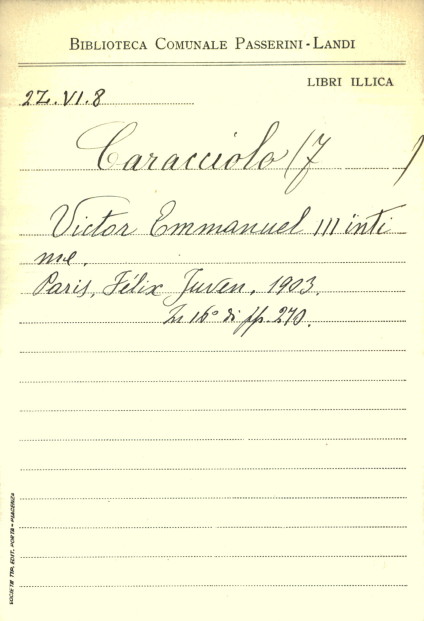 BIBLIOTECA COMUNALE PASSERINI-LANDI
LIBRI ILLICA
2Z.VI.8
Caracciolo (F )
Victor Emmanuel III inti
me.
Paris, Félix Juven. 1903.
In 16° di pp. 270.
SOCIETÀ TIP. EDIT. PORTA - PIACENZA